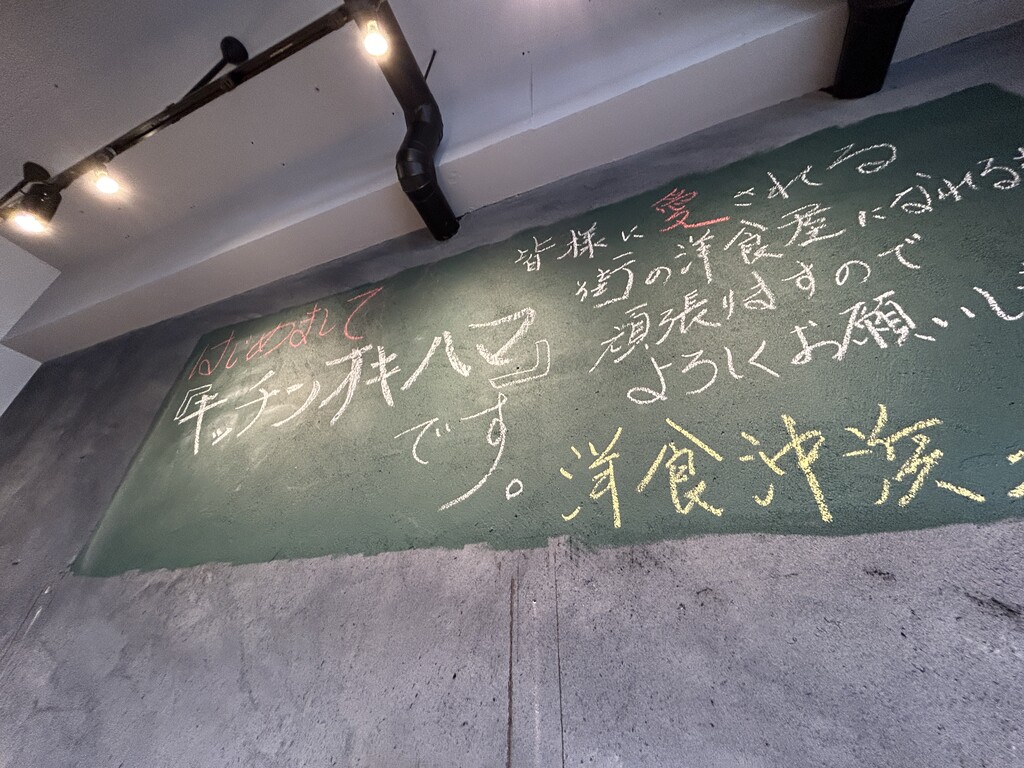 はじめまして
『キッチンオキハマ』
です。
皆様に愛される
街の洋食屋になれる
頑張りますので
よろしくお願いしま
洋食沖浜